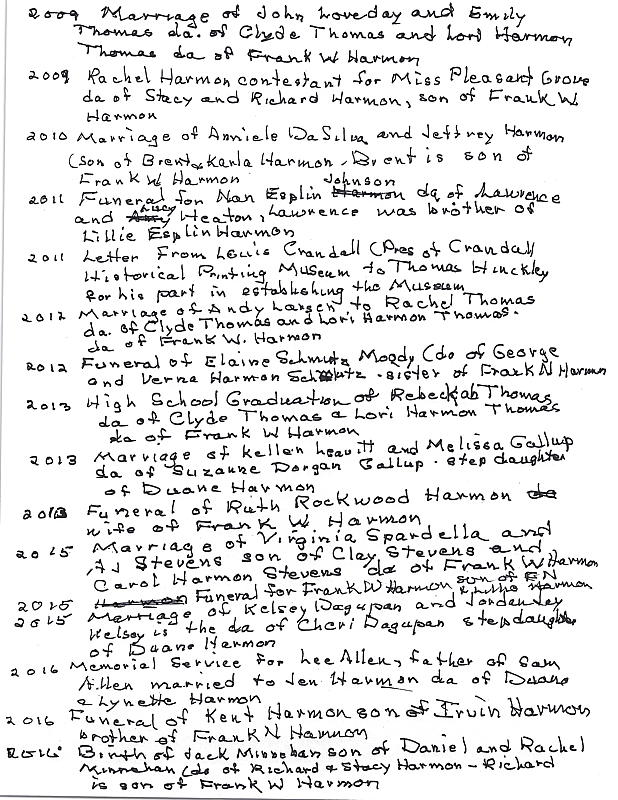 2009 Marriage of John Loveday and Emily
Thomas da. of Clyde Thomas and Lori Harmon
Thomas da of Frank W Harmon
2009 Rachel Harmon contestant for Miss Pleasant Grove
da of Stacy and Richard Harmon, son of Frank W
Harmon
2010 Marriage of Anniele DaSilva and Jeffrey Harmon
(son of Brent & Karla Harmon - Brent is son of
Frank W Harmon
Johnson
2011 Funeral for Nan Esplin Harmon da of Lawrence
and Heaton, Lawrence was brother of
Lillie Esplin Harmon
2011 Letter From Louis Crandall (Pres of Crandall
Historical Printing Museum to Thomas Hinckley
for his part in establishing the Museum
2012 Marriage of Andy Larsen to Rachel Thomas
da. of Clyde Thomas and Lori Harmon Thomas.
da of Frank W. Harmon
2012 Funeral of Elaine Schmutz Moody (da of George
and Verna Harmon Schmutz - sister of Frank N Harmon
2013 High School Graduation of Rebeckah Thomas
da of Clyde Thomas & Lori Harmon Thomas
da of Frank W Harmon
2013 Marriage of Kellen Leavitt and Melissa Gallup
da of Suzanne Dorgan Gallup - step daughter
of Duane Harmon
2013 Funeral of Ruth Rockwood Harmon da
wife of Frank W Harmon
2015 Marriage of Virginia Spardella and
AJ Stevens son of Clay Stevens and
Carol Harmon Stevens da of Frank W Harmon
2015 Harmon Funeral for Frank W Harmon son of FN & Lillie Harmon
2015 Marriage of Kelsey Dagupan and Jordan Jey
Kelsey is the da of Cheri Dagupan stepdaughter
of Duane Harmon
2016 Memorial Service for Lee Allen, father of Sam
Allen married to Jen Harmon da of Duane
& Lynette Harmon
2016 Funeral of Kent Harmon son of Irvin Harmon
brother of Frank N Harmon
2016 Birth of Jack Minnehan son of Daniel and Rachel
Minnehan (da of Richard & Stacy Harmon - Richard
is son of Frank W Harmon